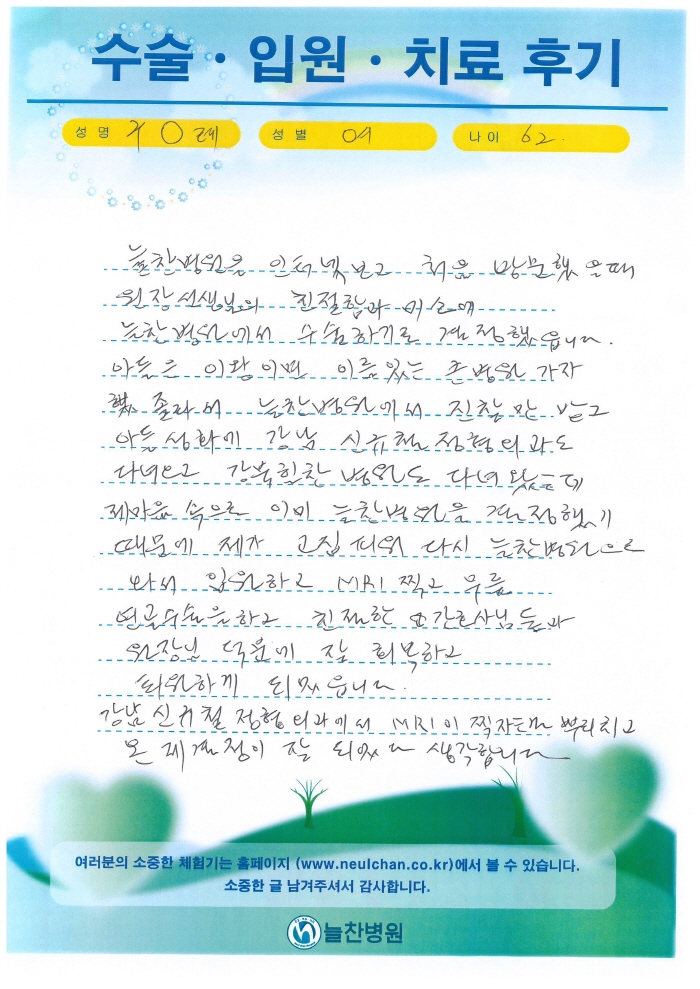 수술 · 입원 · 치료 후기
성 명 구 O 례 성 별 여 나 이 62.
늘찬병원을 인터넷보고 처음 방문했을때
원장선생님의 친절함과 미소에
늘찬병원에서 수술하기로 결정했읍니다.
아들은 이왕이면 이름있는 큰병원 가자
했 졸라서 늘찬병원에서 진찰만 받고
아들성화에 강남 신규철 정형외과도
다녀오고 강북힘찬 병원도 다녀왔는데
제마음 속으로 이미 늘찬병원을 결정했기
때문에 제가 고집피워 다시 늘찬병원으로
와서 입원하고 MRI 찍고 무릎
연골수술을하고 친절한 간호사님들과
원장님 덕분에 잘 회복하고
퇴원하게 되었읍니다.
강남 신규철 정형외과에서 MRI 찍자는걸 뿌리치고
온 제결정이 잘 되었다 생각합니다
여러분의 소중한 체험기는 홈페이지 (www.neulchan.co.kr)에서 볼 수 있습니다.
소중한 글 남겨주셔서 감사합니다.
늘찬병원